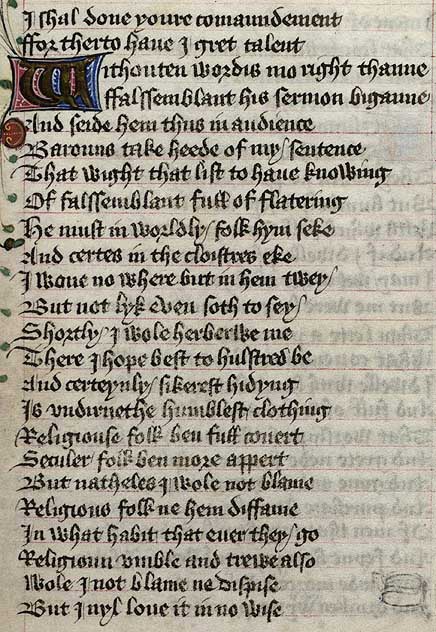 I shal done youre comaundement
ffor therto haue I gret talent
Withouten wordis mo right thanne
ffalssemblant his sermon biganne
And seide hem thus in audience
Barouns take heede of my sentence
That wight that list to haue knowing
Of falssemblant full of flatering
He must in worldly folk hym seke
And certes in the cloistres eke
I wone no where but in hem twey
But not lyk even soth to sey
Shortly I wole herberwe me
There I hope best to hulstred be
And certeynly sikerest hidyng
Is vndirnethe humblest clothing
Religiouse folk ben full couert
Seculer folk ben more appert
But natheles I wole not blame
Religious folk ne hem diffame
In what habit that euer they go
Religioun vmble and trewe also
Wole I not blame ne dispise
But I nyl loue it in no wise